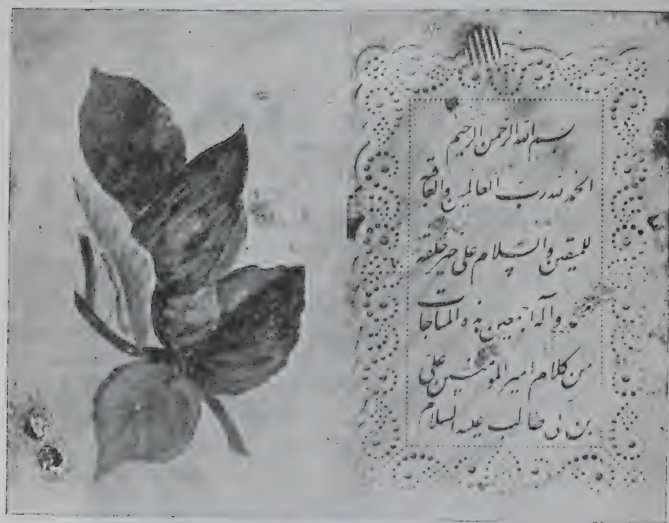 بسم الله الرحمن الرحيم
الحمد لله رب العالمين والعاقبة
للمتقين والسلام على خير خلقه
وآله اجمعين هذه المناجات
من كلام امير المؤمنين على
بن ابى طالب عليه السلام